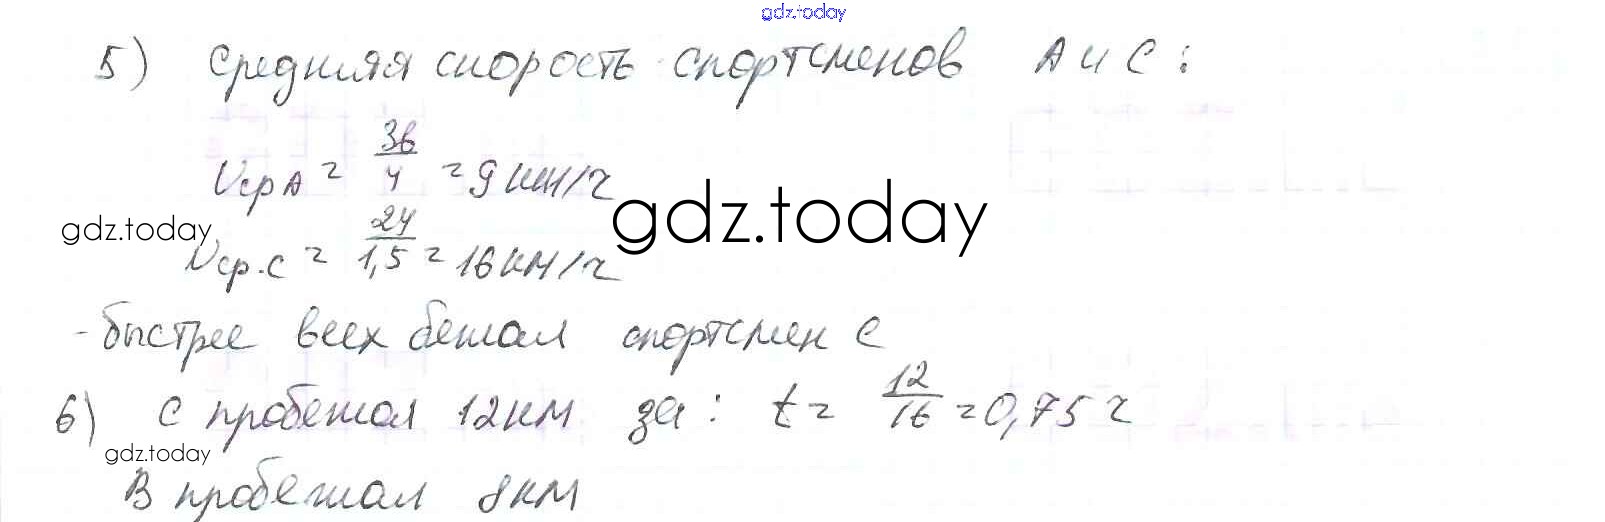 gdz.today
5) Средняя скорость спортсменов А и С:
Vср А = 36/4 = 9 км/ч
gdz.today
gdz.today
Vср.С = 24/1,5 = 16 км/ч
- быстрее всех бежал спортсмен С
6) С пробежал 12 км за: t = 12/16 = 0,75 ч
gdz.today
В пробежал 8 км